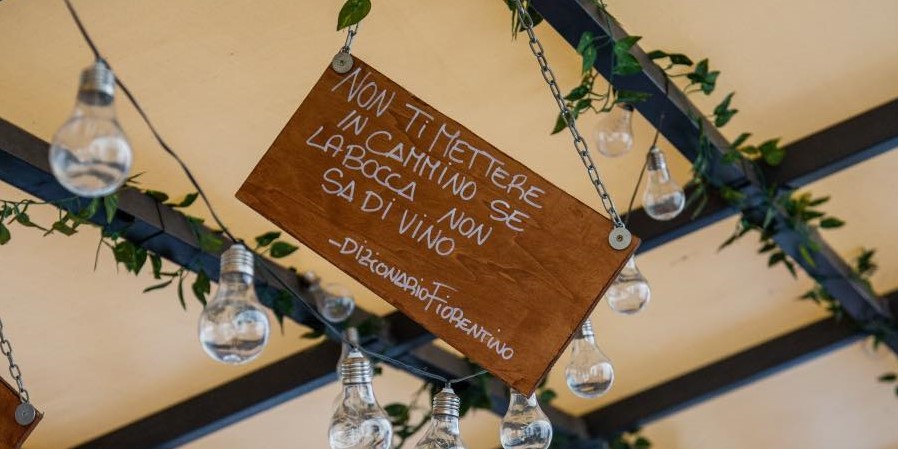 NON Ti METTERE
IN CAMMINO SE
LA BOCCA NON
SA DI VINO
-DIZIONARIO FIORENTINO